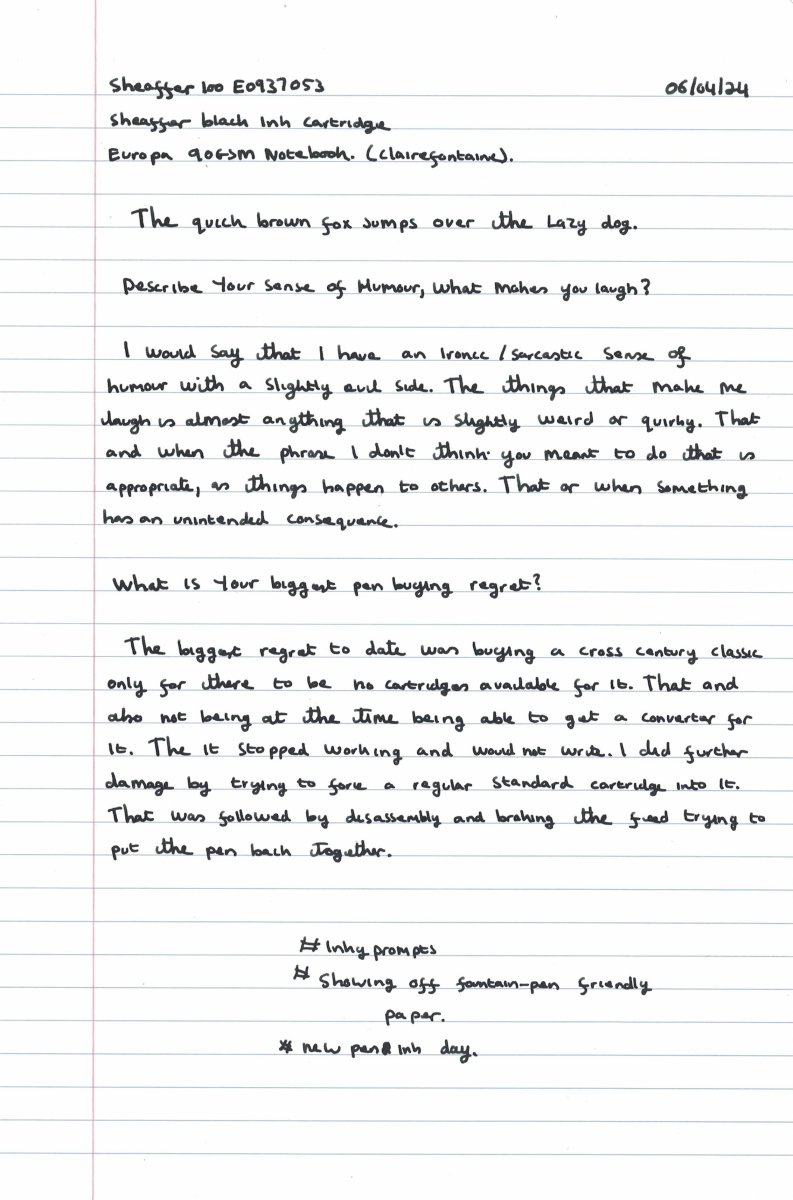 Sheaffer 100 E0937053 06/04/24
Sheaffer black Ink Cartridge
Europa 90GSM Notebook. (Clairefontaine).
The quick brown fox Jumps over the Lazy dog.
Describe Your Sense of Humour, What Makes you laugh?
I would say that I have an Ironic / Sarcastic Sense of
humour with a slightly evil side. The things that make me
laugh is almost anything that is slightly weird or quirky. That
and when the phrase I don't think you meant to do that is
appropriate, as things happen to others. That or when something
has an unintended consequence.
What is Your biggest pen buying regret?
The biggest regret to date was buying a cross century classic
only for there to be no cartridges available for it. That and
also not being at the time being able to get a converter for
It. The It stopped working and would not write. I did further
damage by trying to force a regular standard cartridge into It.
That was followed by disassembly and braking the feed trying to
put the pen back Together.
# Inky prompts
# Showing off fountain-pen friendly
paper.
# new pen & ink day.